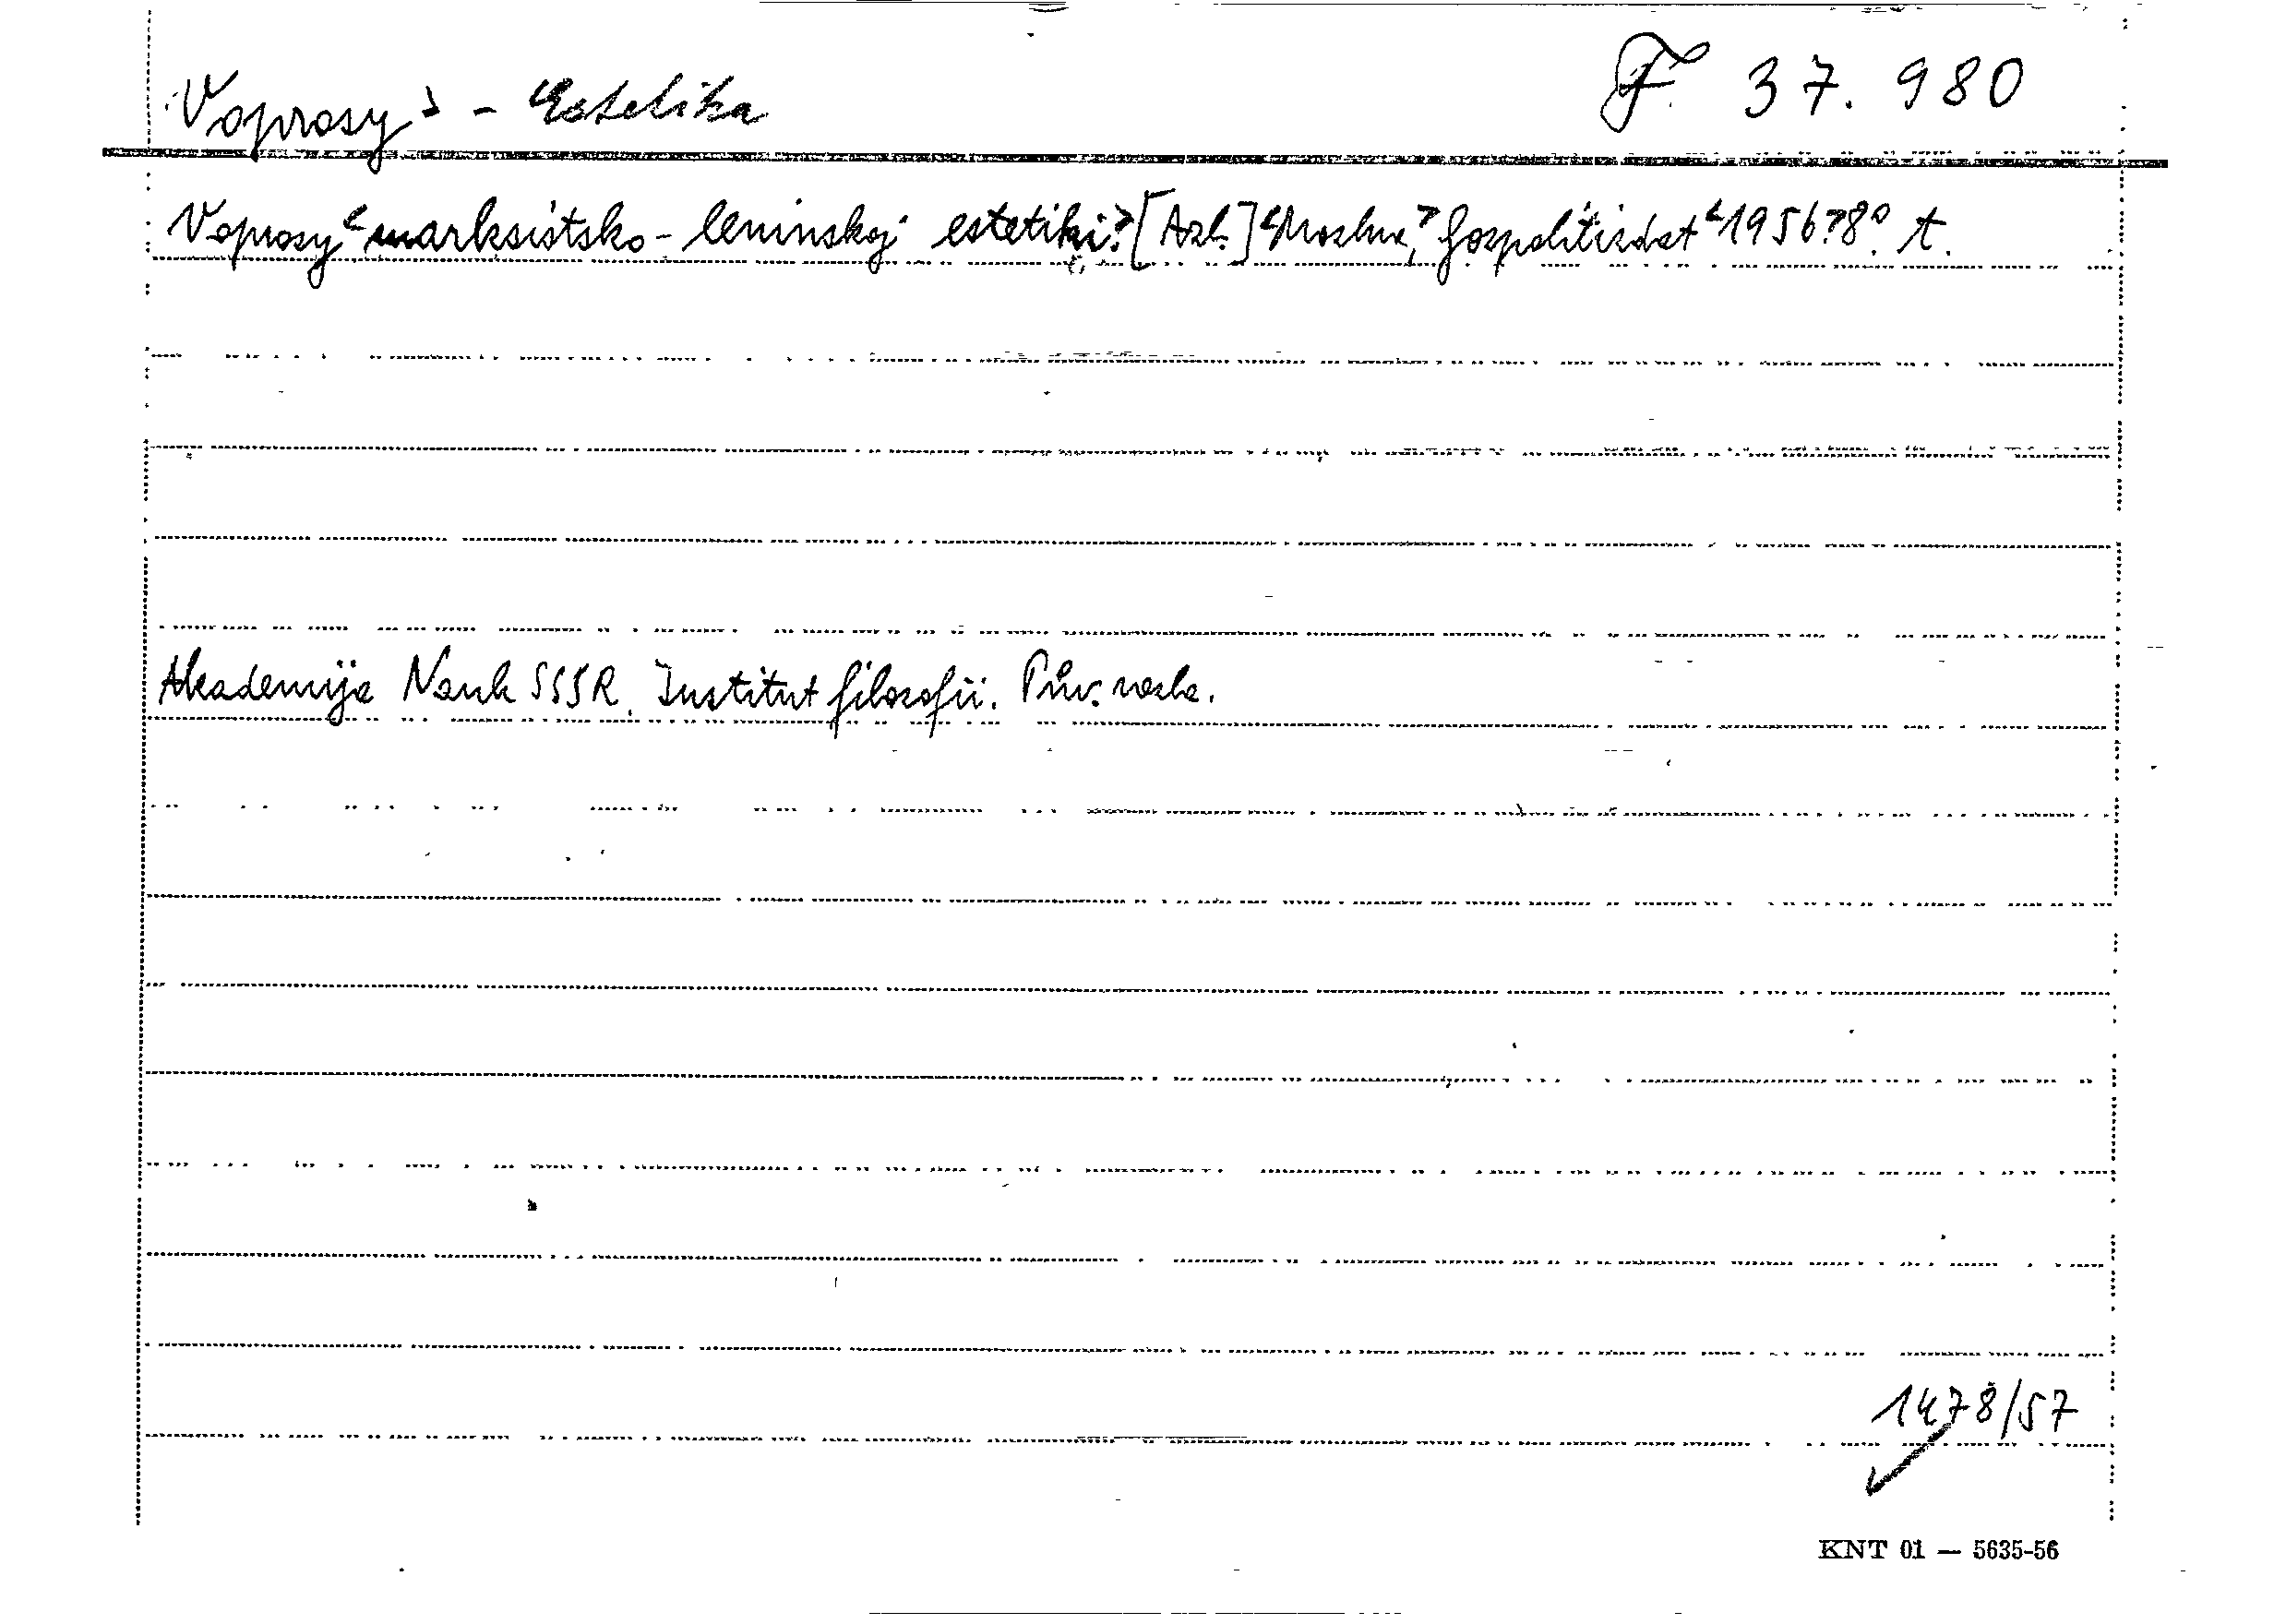 Voprosy - Estetika F 37.980
Voprosy marksistsko-leninskoj estetiki. [Azb.] Moskva, Gospolitizdat 1956. 8° t.
Akademija Nauk SSSR. Institut filosofii. Pův. vazba.
1478/57
KNT 01 — 5635-56